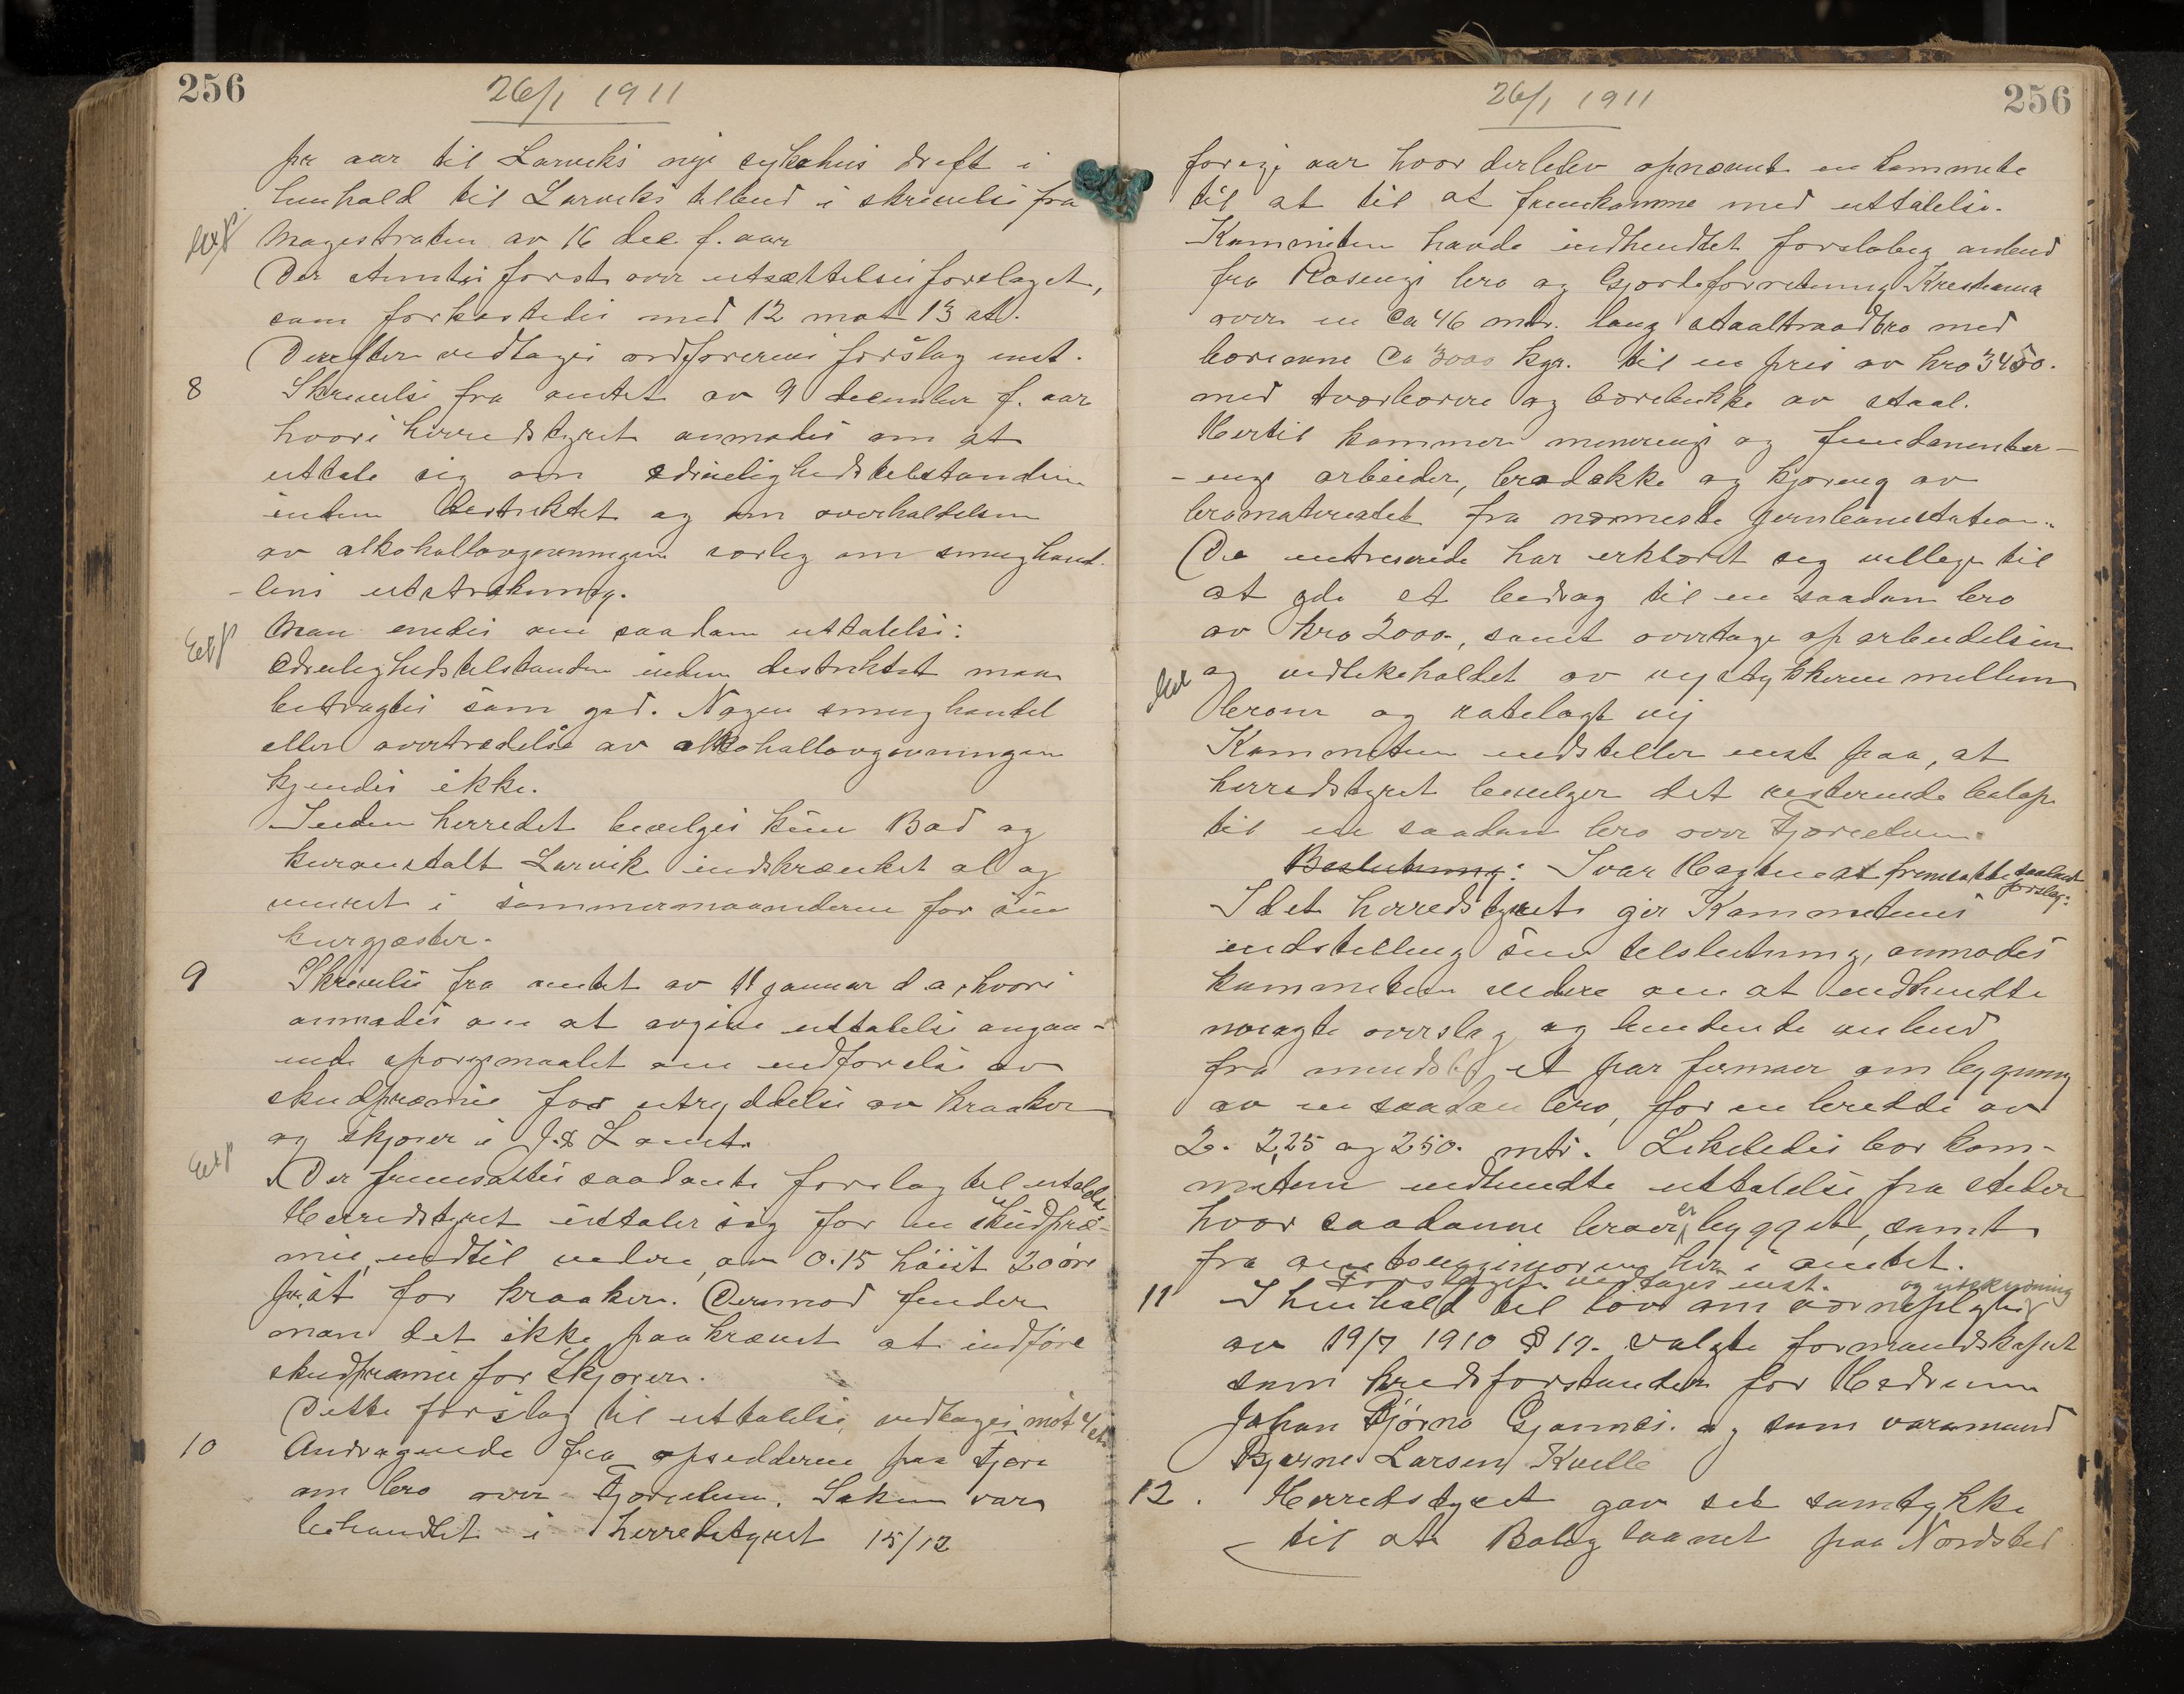 256
26/1 1911
pr aar til Larviks nye sykehus drift i
henhold til Larviks tilbud i skrivelse fra
Exp.
Magistraten av 16 dec. f. aar
Der stemtes først over utsættelsesforslaget,
som forkastedes med 12 mot 13 st.
Derefter vedtages ordførerens forslag enst.
8 Skrivelse fra amtet av 9 december f. aar
hvori herredstyret anmodes om at
uttale sig om ædruelighedstilstanden
inden distriktet og om overholdelsen
av alkohollovgivningen særlig om smughand-
-lens utstrækning.
Exp
Man enedes om saadan uttalelse:
Ædruelighedstilstanden inden distriktet maa
betragtes som god. Nogen smughandel
eller overtrædelse av alkohollovgivningen
kjendes ikke.
Inden herredet bevilges kun Bad og
kuranstalt Larvik indskrænket øl og
vinret i sommermaanederne for sine
kurgjæster.
9 Skrivelse fra amtet av 11 januar d.a, hvori
anmodes om at avgive uttalelse angaa-
ende spørgsmaalet om indførelse av
skudpræmie for utryddelse av kraaker
og skjærer i J. & L amt.
Exp
Der fremsattes saadant forslag til uttalelse
Herredstyret uttaler sig for en skudpræ-
mie, indtil videre, av 0.15 høist 20 øre
pr. st for kraaker. Derimod finder
man det ikke paakrævet at indføre
skudpræmie for skjærer.
Dette forslag til uttalelse vedtages mot 4 st.
10 Andragende fra opsidderne paa Fjære
om bro over Fjæreelven. Saken var
behandlet i herredstyret 15/12
256
26/1 1911
forrige aar hvor der blev opnævnt en kommite
til at til at fremkomme med uttalelse.
Kommiteen havde indhendtet foreløbig anbud
fra Rosenqi bro og Gjærdeforretning Kristiania
over en ca 46 mtr. lang staaltraadbro med
bæreevne ca 3000 kgr. til en pris av kro 3450.
med tværbærere og bærebukke av staal.
Hertil kommer murerings og fundamenter-
-ings arbeider, brodække og kjøring av
bromaterialet fra nærmeste jernbanestation.
De intreserede har erklæret sig villige til
at yde et bidrag til en saadan bro
av kro 2000., samt overtage oparbeidelsen
Exp
og vedlikeholdet av veistykkerne mellem
broen og ratelagt vei
Kommiteen indstiller enst paa, at
herredstyret bevilger det resterende beløp
til en saadan bro over Fjæreelven.
Beslutning: Ivar Hagtvedt fremsatte saadant
forslag:
Idet herredstyret gir Kommiteens
indstilling sin tilslutning, anmodes
kommiteen videre om at indhendte
nøiagtig overslag og bindende anbud
fra mindst et par firmaer om bygning
av en saadan bro, for en bredde av
2. 2,25 og 250. mtr. Likeledes bør kom-
miteen indhendte uttalelse fra steder
hvor saadanne broer er bygget, samt
fra amtsingeniøren her i amtet.
Forslaget vedtages enst.
11 I henhold til lov om værnepligt og utskrivning
av 19/7 1910 § 17. valgte formandskapet
som kredsforstander for Hedrum
Johan Bjørno Gjønnes. og som varamand
Bjarne Larsen Kvelle
12. Herredstyret gav sit samtykke
til at Boliglaanet paa Nordsted